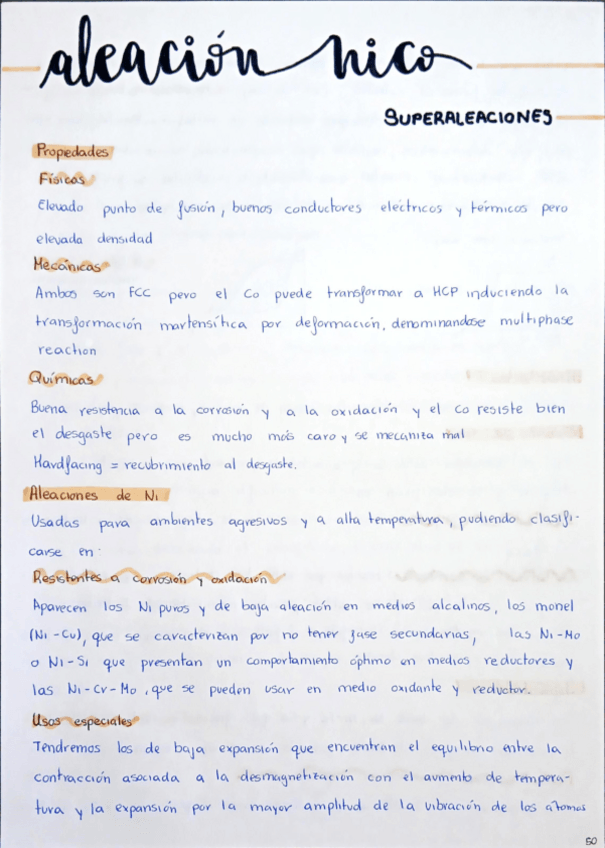 aleación nico
SUPERALEACIONES
Propedades
Físicas
Elevado punto de fusión, buenos conductores eléctricos y térmicos pero
elevada densidad
Mecánicas
Ambos son FCC pero el Co puede transformar a HCP induciendo la
transformación martensítica por deformación, denominandose multiphase
reaction
Químicas
Buena resistencia a la corrosión y a la oxidación y el Co resiste bien
el desgaste pero es mucho más caro y se mecaniza mal
Hardfacing = recubrimiento al desgaste.
Aleaciones de Ni
Usadas para ambientes agresivos y a alta temperatura, pudiendo clasifi-
carse en:
Resistentes a corrosión y oxidación
Aparecen los Ni puros y de baja aleación en medios alcalinos, los monel
(Ni-Cu), que se caracterizan por no tener fase secundarias, las Ni-Mo
o Ni-Si que presentan un comportamiento óptimo en medios reductores y
las Ni-Cr-Mo, que se pueden usar en medio oxidante y reductor.
Usos especiales
Tendremos los de baja expansión que encuentran el equilibrio entre la
contracción asociada a la desmagnetización con el aumento de tempera-
tura y la expansión por la mayor amplitud de la vibración de los átomos
50